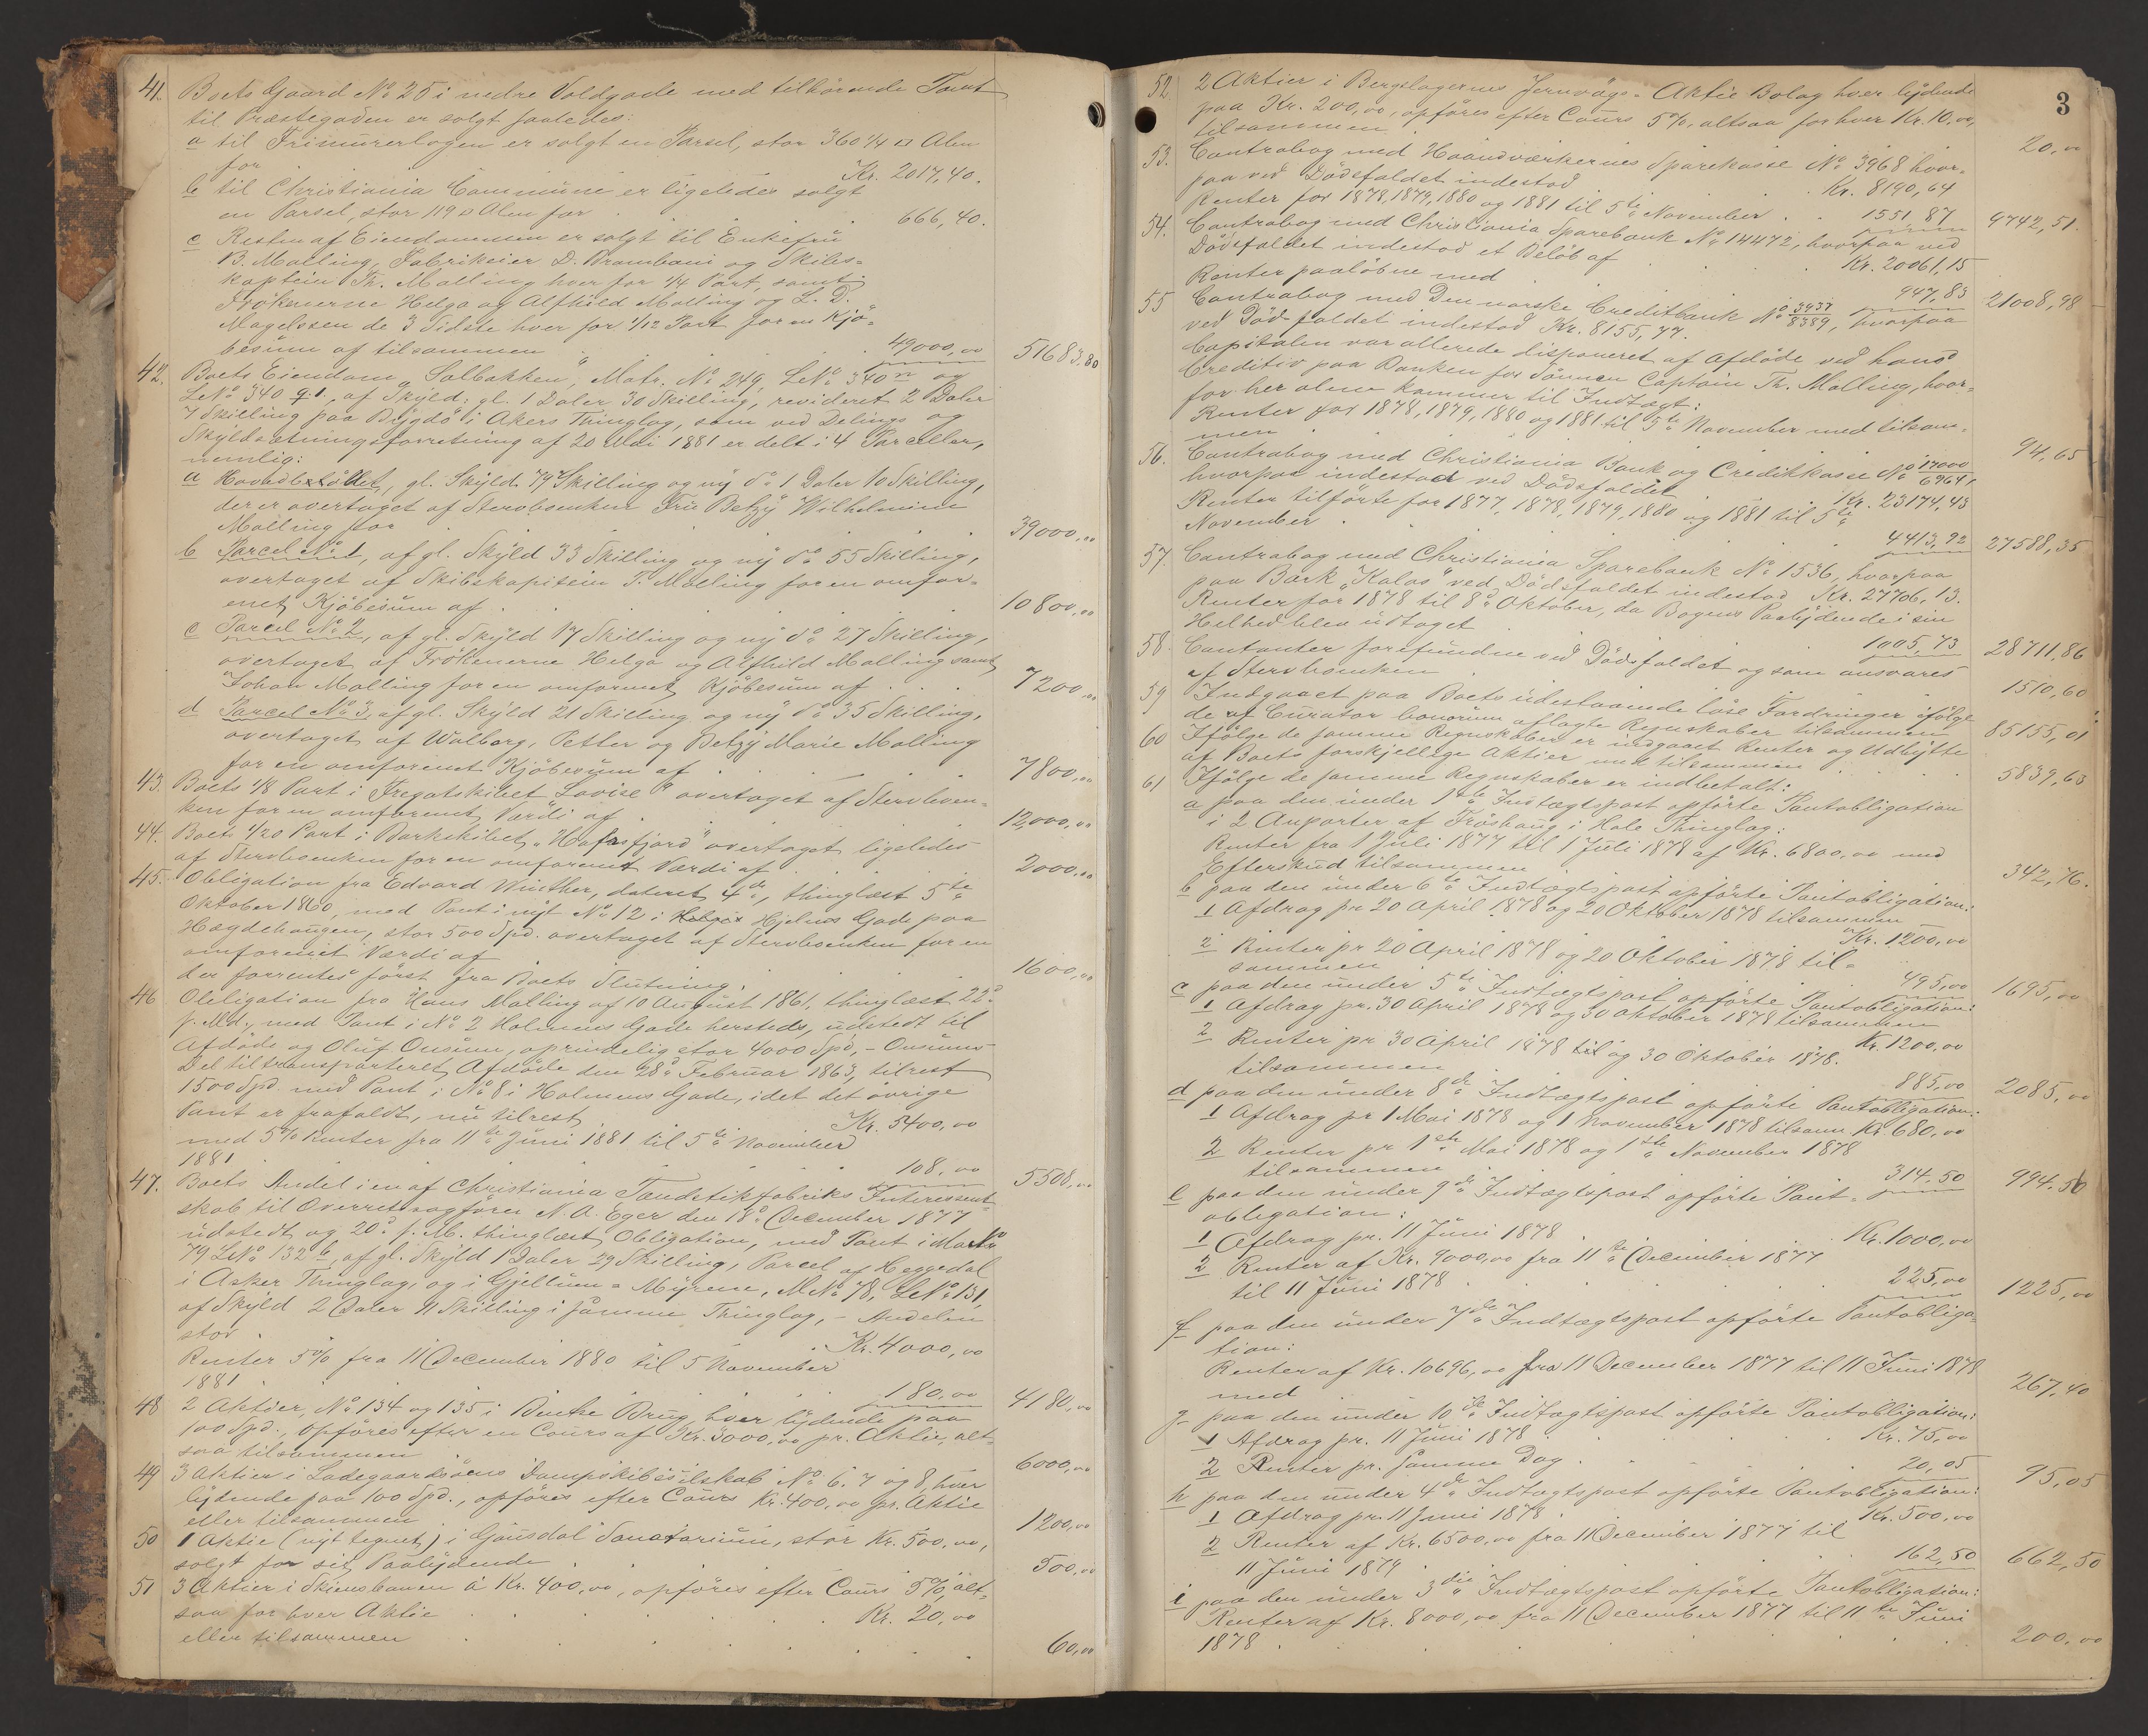 41. Boets Gaard No 25 i nedre Voldgade med tilhörende Tomt
til Præstegaden er solgt saaledes:
a til Frimurerlogen er solgt en Parsel, stor 360 1/4 □ Alen
for Kr. 2017,40.
b til Christiania Commune er ligeledes solgt
en Parsel, stor 119 □ Alen for 666,40.
c Resten af Eiendommen er solgt til Enkefru
B. Malling, Fabrikeier D. og Skibs=
kaptein Th. Malling hver for 1/4 Part, samt
Frökenerne Helga og Alfhild Malling og L. D.
Magelssen de 3 Sidste hver for 1/12 Part for en Kjö=
besum af tilsammen 49000,00 51683,80
42. Boets Eiendom „Solbakken", Matr. No 249, LNo 340 n og
LNo 340 q.1., af Skyld: gl. 1 Daler 30 Skilling, revideret 2 Daler
7 Skilling paa Bygdö i Akers Thinglag, som ved Delings og
Skyldsætningsforretning af 20 Mai 1881 er delt i 4 Parceller,
nemlig:
a Hovedbölet, gl. Skyld 79 Skilling og ny do 1 Daler 10 Skilling,
der er overtaget af Stervboenken Fru Betzy Wilhelmine
Malling for 39000,00
b Parcel No 1, af gl. Skyld 33 Skilling og ny do 55 Skilling,
overtaget af Skibskaptein T. Malling for en omfor=
enet Kjöbesum af 10800,00
c Parcel No 2, af gl. Skyld 17 Skilling og ny do 27 Skilling,
overtaget af Frökenerne Helga og Alfhild Malling samt
Johan Malling for en omforenet Kjöbesum af 7200,00
d Parcel No 3, af gl. Skyld 21 Skilling og ny do 35 Skilling,
overtaget af Walborg, Petter og Betzy Marie Malling
for en omforenet Kjöbesum af 7800,00
43. Boets 1/8 Part i Fregatskibet „Lovise" overtaget af Stervboen=
ken for en omforenet Værdi af 12,000,00
44. Boets 1/20 Part i Barkskibet „Hafrsfjord" overtaget ligeledes
af Stervboenken for en omforenet Værdi af 2000,00
45. Obligation fra Edvard Winther, dateret 4de, thinglæst 5te
Oktober 1860, med Pant i nyt No 12 i Hjelms Gade paa
Hægdehaugen, stor 500 Spd. overtaget af Stervboenken for en
omforenet Værdi af 1600,00
der forrentes först fra Boets Slutning.
46 Obligation fra Hans Malling af 10 August 1861, thinglæst 22d
s. Md., med Pant i No 2 Holmens Gade hersteds, udstedt til
Afdöde og Oluf Onsum, oprindelig stor 4000 Spd, - Onsums
Del til transporteret Afdöde den 28d Februar 1863, tilrest
1500 Spd med Pant i No 8 i Holmens Gade, idet det övrige
Pant er frafaldt, nu tilrest Kr. 5400,00
med 5% Renter fra 11te Juni 1881 til 5te November
1881 108,00 5508,00
47. Boets Andel i en af Christiania Tændstikfabriks Interessent=
skab til Overretssagförer N. A. Eger den 18d December 1877
udstedt og 20d s. M. thinglæst Obligation, med Pant i Mark No
79 LNo 132 b, af gl. Skyld 1 Daler 29 Skilling, Parcel af Heggedal
i Asker Thinglag, og i Gjellum=Myrene, MNo 78, LNo 131,
af Skyld 2 Daler 11 Skilling i samme Thinglag, - Andelen
stor Kr. 4000,00
Renter 5% fra 11 December 1880 til 5 November
1881 180,00 4180,00
48 2 Aktier, No 134 og 135 i Bentse Brug, hver lydende paa
100 Spd., opföres efter en Cours af Kr. 3000,00 pr. Aktie, alt=
saa tilsammen 6000,00
49 3 Aktier i Ladegaardsöens Dampskibsselskab No 6. 7 og 8, hver
lydende paa 100 Spd., opföres efter Cours Kr. 400,00 pr. Aktie
eller tilsammen 1200,00
50 1 Aktie (nyt tegnet) i Gausdal Sanatorium, stor Kr. 500,00,
solgt for sit Paalydende 500,00
51 3 Aktier i Skiensbanen á Kr. 400,00, opföres efter Cours 5%, alt=
saa for hver Aktie Kr. 20,00
eller tilsammen 60,00
3
52 2 Aktier i Bergslagernes Jernvägs=Aktie Bolag hver lydende
paa Kr. 200,00, opföres efter Cours 5%, altsaa for hver Kr. 10,00,
tilsammen 20,00
53. Contrabog med Haandværkernes Sparekasse No 3968 hvor=
paa ved Dödsfaldet indestod Kr. 8190,64
Renter for 1878, 1879, 1880 og 1881 til 5te November 1551,87 9742,51.
54. Contrabog med Christiania Sparebank No 14472, hvorpaa ved
Dödsfaldet indestod et Belöb af Kr. 20061,15
Renter paalöbne med 947,83 21008,98
55 Contrabog med Den norske Creditbank No 3937/8389, hvorpaa
ved Dödsfaldet indestod Kr. 8155,77.
Capitalen var allerede disponeret af Afdöde ved hans
Creditiv paa Banken for Sönnen Captain Th. Malling, hvor=
for her alene kommer til Indtægt:
Renter for 1878, 1879, 1880 og 1881 til 5te November med tilsam=
men 94,65
56. Contrabog med Christiania Bank og Creditkasse No 17000/6964,
hvorpaa indestod ved Dödsfaldet Kr. 23174,43
Renter tilförte for 1877, 1878, 1879, 1880 og 1881 til 5te
November 4413,92 27588,35
57. Contrabog med Christiania Sparebank No 1536, hvorpaa
paa Bark „Kalos" ved Dödsfaldet indestod Kr. 27706,13.
Renter for 1878 til 8d Oktober, da Bogens Paalydende i sin
Helhed blev udtaget 1005,73 28711,86
58. Contanter forefundne ved Dödsfaldet og som ansvares
af Stervboenken 1510,60
59 Indgaaet paa Boets udestaaende löse Fordringer ifölge
de af Curator bonorum aflagte Regnskaber tilsammen 85155,01
60 Ifölge de samme Regnskaber er indgaaet Renter og Udbytte
af Boets forskjellige Aktier med tilsammen 5839,63
61 Ifölge de samme Regnskaber er indbetalt:
a paa den under 1ste Indtægtspost opförte Pantobligation
i 2 Anparter af Fröshaug i Hole Thinglag:
Renter fra 1 Juli 1877 til 1 Juli 1878 af Kr. 6800,00 med
Efterskud tilsammen 342,76.
b paa den under 6te Indtægtspost opförte Pantobligation:
1 Afdrag pr 20 April 1878 og 20 Oktober 1878 tilsammen
Kr. 1200,00
2 Renter pr 20 April 1878 og 20 Oktober 1878 til=
sammen 495,00 1695,00
c paa den under 5te Indtægtspost opförte Pantobligation:
1 Afdrag pr. 30 April 1878 og 30 Oktober 1878 tilsammen
Kr. 1200,00
2 Renter pr 30 April 1878 og 30 Oktober 1878.
tilsammen 885,00 2085,00
d paa den under 8de Indtægtspost opförte Pantobligation:
1 Afdrag pr 1 Mai 1878 og 1 November 1878 tilsam. Kr. 680,00
2 Renter pr 1ste Mai 1878 og 1ste November 1878
tilsammen 314.50 994.50
e paa den under 9de Indtægtspost opförte Pant=
obligation:
1 Afdrag pr. 11 Juni 1878 Kr. 1000,00
2 Renter af Kr. 9000,00 fra 11te December 1877
til 11 Juni 1878 225,00 1225,00
f paa den under 7de Indtægtspost opförte Pantobliga=
tion:
Renter af Kr. 10696,00 fra 11 December 1877 til 11 Juni 1878
med 267,40
g paa den under 10de Indtægtspost opförte Pantobligation:
1 Afdrag pr. 11 Juni 1878 Kr. 75,00
2 Renter pr. samme Dag 20,05 95,05
h paa den under 4de Indtægtspost opförte Pantobligation:
1 Afdrag pr. 11 Juni 1878 Kr. 500,00
2 Renter af Kr. 6500,00 fra 11 December 1877 til
11 Juni 1879 162,50 662,50
i paa den under 3die Indtægtspost opförte Pantobligation:
Renter af Kr. 8000,00 fra 11 December 1877 til 11te Juni
1878 200,00